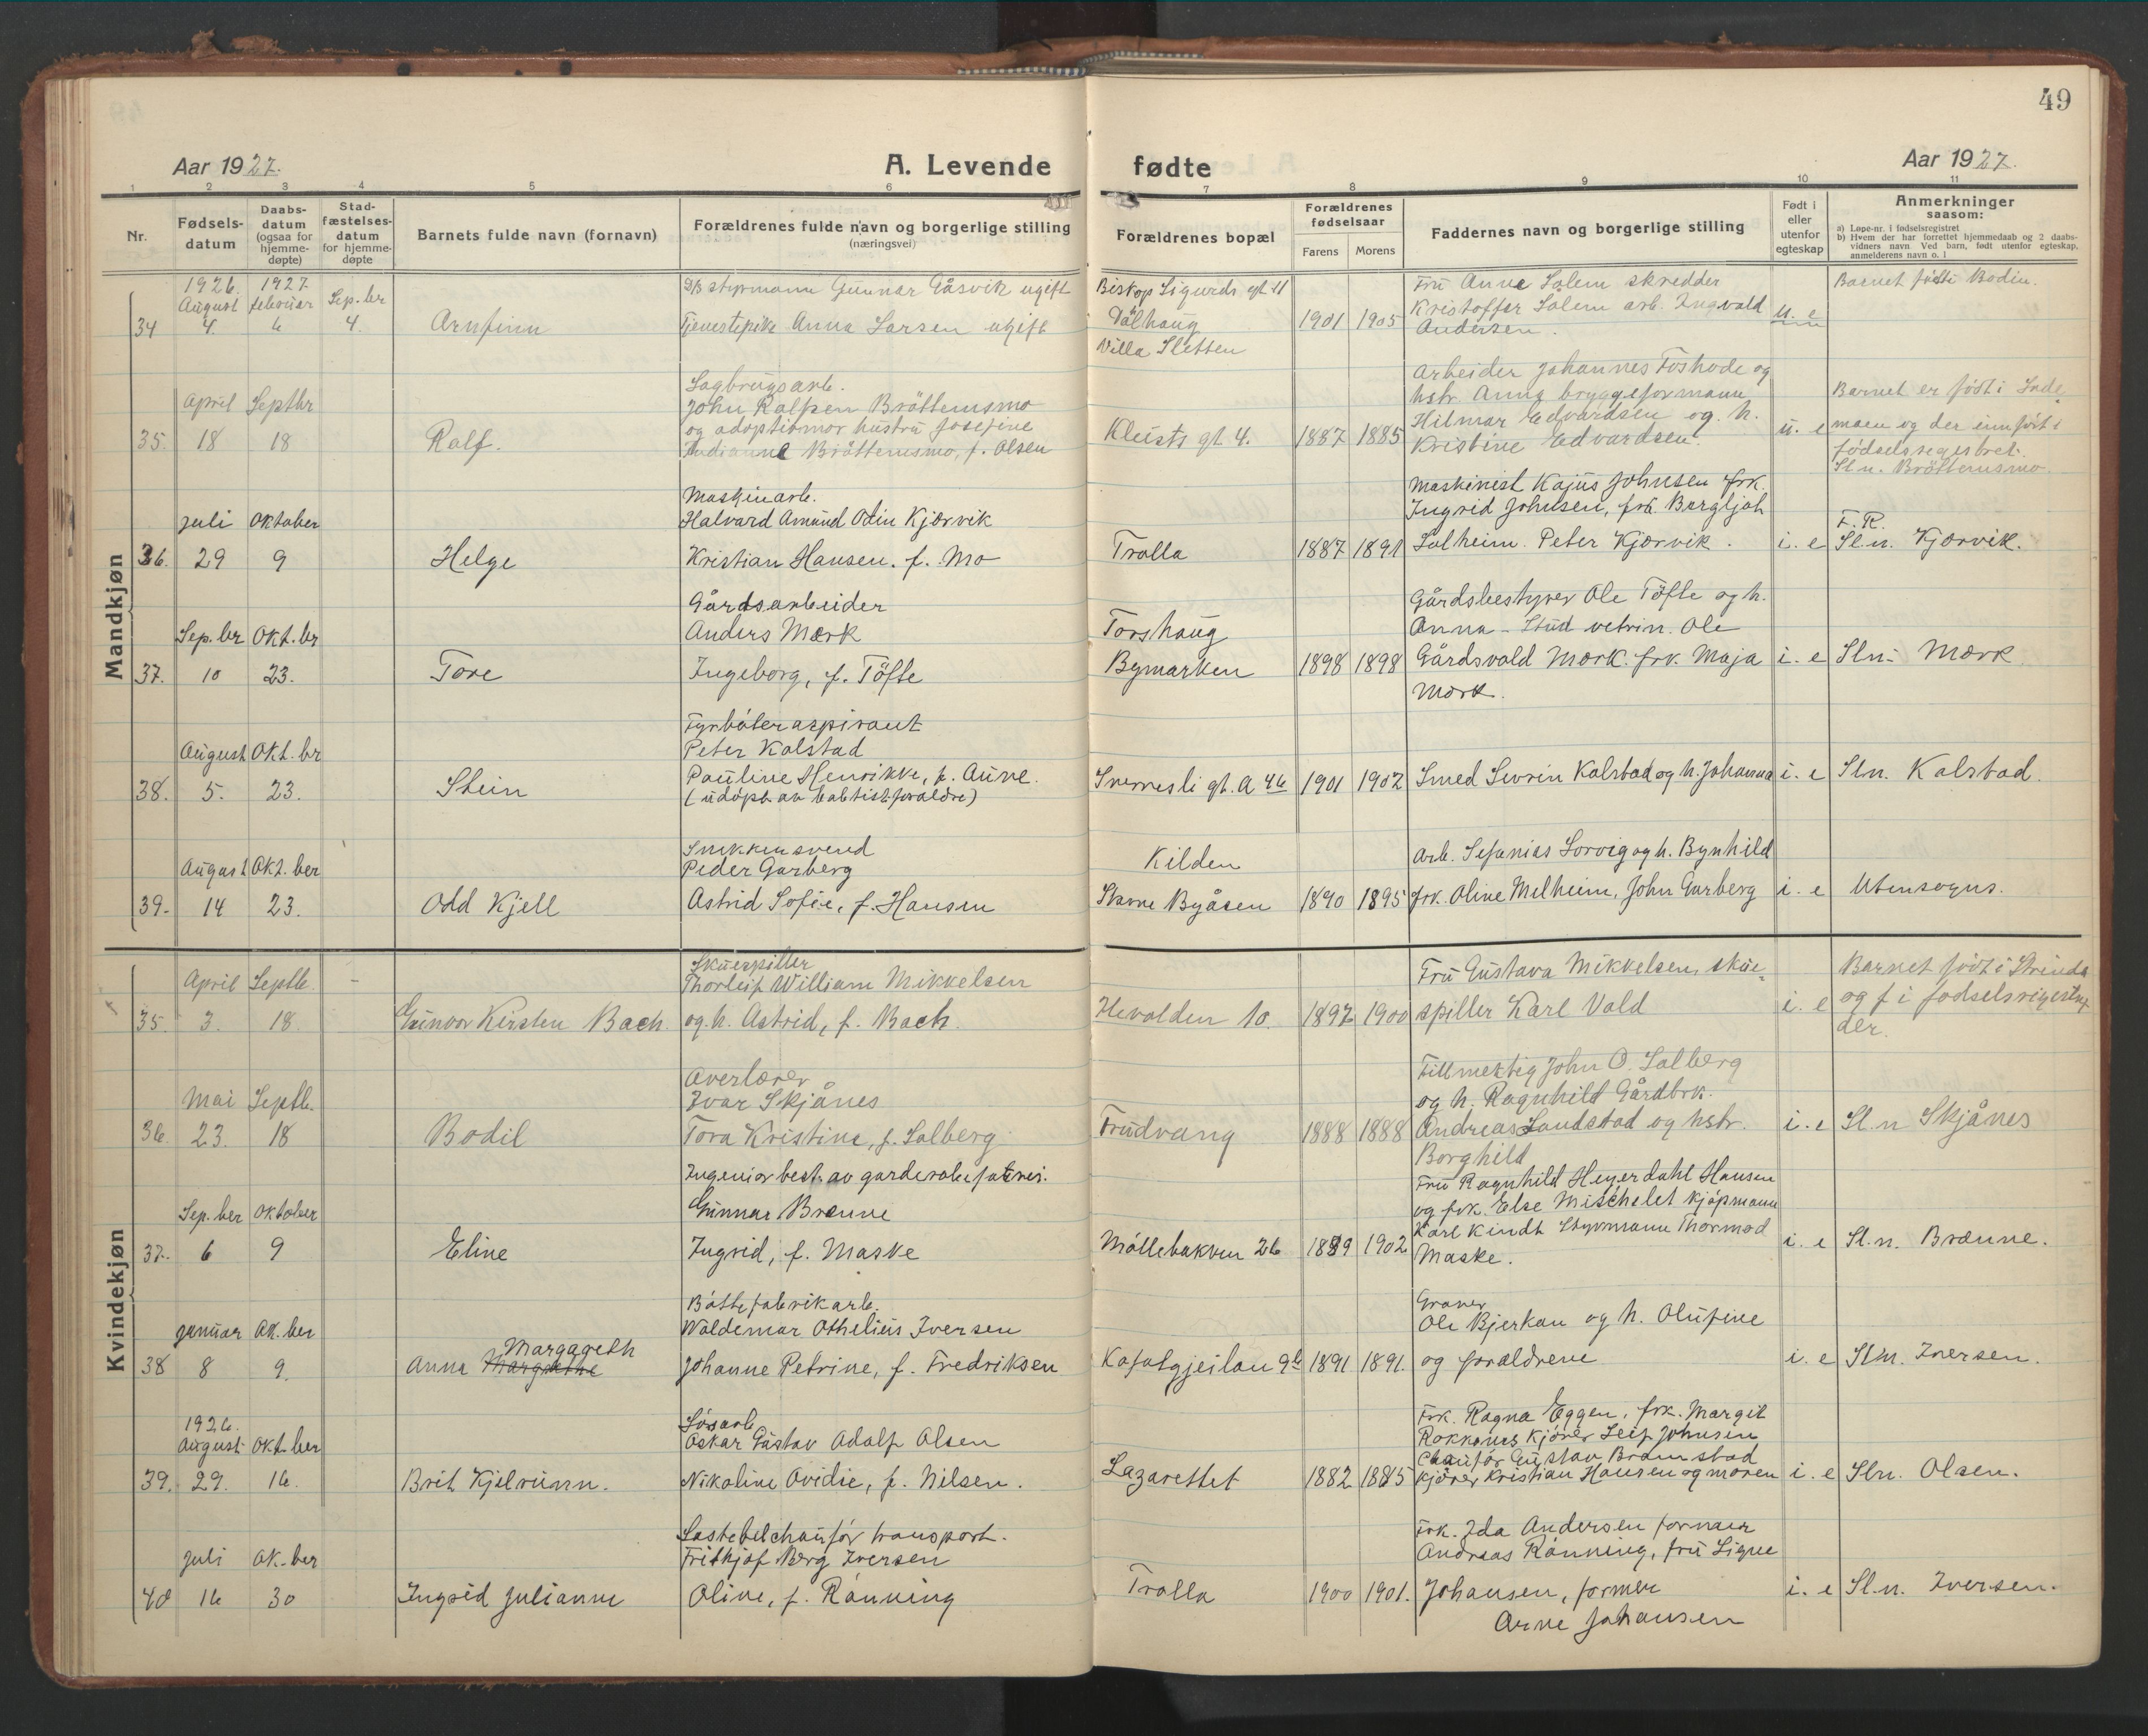 49
Aar 1927. A. Levende
fødte Aar 1927.
1 2 3 4 5 6 7 8 9 10 11
Nr.
Fødsels-
datum
Daabs-
datum
(ogsaa for
hjemme-
døpte)
Stad-
fæstelses-
datum
for hjemme-
døpte
Barnets fulde navn (fornavn)
Forældrenes fulde navn og borgerlige stilling
(næringsvei)
Forældrenes bopæl
Forældrenes
fødselsaar
Farens Morens
Faddernes navn og borgerlige stilling
Født i
eller
utenfor
egteskap
Anmerkninger
saasom:
a) Løpe-nr. i fødselsregistret
b) Hvem der har forrettet hjemmedaab og 2 daabs-
vidners navn Ved barn, født utenfor egteskap,
anmelderens navn o. l
Mandkjøn
34
1926.
August
4.
1927
februar
6
Sep.ber
4.
Arnfinn
styrmann Gunnar Gåsvik ugift
Tjenestepike Anna Larsen ugift
Biskop Sigurds gt 11
Dalhaug
Villa Sletten
1901 1905
Fru Anna Solem skredder
Kristoffer Solem arb. Ingvald
Andersen.
u. e
Barnet født i Bodin.
35.
April
18
Septbr
18
Ralf.
Sagbrugsarb.
John Ralfsen Bröttemsmo
og adoptivmor hustru Josefine
Bröttemsmo, f. Olsen
gt 4.
1887 1885
Arbeider Johannes Foshode og
hstr. Anna bryggeformann
Hilmar Edvardsen og h.
Kristine Edvardsen.
u. e
Barnet er født i Inde-
moen og der innført i
fødselsregistret.
Sl.n. Bröttemsmo.
36.
Juli
29
Oktober
9
Helge
Maskinarb.
Halvard Amund Odin Kjærvik
Kristian Hansen. f. Mo
Trolla
1887 1891
Maskinist Kajus Johnsen frk.
Ingrid Johnsen, frk. Borgljot
Solheim. Peter Kjærvik.
i. e
F. R.
Sl.n. Kjærvik.
37.
Sep.br
10
Okt.br
23.
Tore
Gårdsarbeider
Anders Mærk
Ingeborg, f. Töfte
Torshaug
Bymarken
1898 1898
Gårdsbestyrer Ole Töfte og h.
Anna - Stud vetrin. Ole
Gårdsvold Mærk. frk. Maja
Mærk.
i. e
Sl.n. Mærk
38.
August
5.
Okt.br
23.
Stein
Fyrbøteraspirant
Peter Kalstad
Pauline Henrikke, f. Aune.
(udøpt av babtistforældre)
Sverresli gt. A 46
1901 1902
Smed Sevrin Kalstad og h. Johanna
i. e
Sl.n. Kalstad.
39.
August
14
Okt.ber
23.
Odd Kjell
Snekkersvend
Peder Garberg
Astrid Sofie, f. Hansen
Kilden
Stavne Byåsen
1890 1895
Arb. Sefanias Sorvig og h. Bynhild
frk. Oline Melheim, John Garberg
i. e
Utensogns.
Kvindekjøn
35.
April
3.
Septb.
18.
-
Gunvor Kirsten Bach.
Skuespiller
Thorleif William Mikkelsen
og h. Astrid, f. Bach.
Hevolden 10.
1897 1900
Fru Gustava Mikkelsen, skue-
spiller Karl Vold
i. e
Barnet født i Strinda
og f i fødselsregistret
der.
36.
Mai
23.
Septb.
18
Bodil
Overlærer
Ivar Skjånes
Tora Kristine, f. Solberg
Trudvang
1888 1888
Fullmektig John O. Solberg
og h. Ragnhild Gårdbrk.
Andreas Landstad og hstr.
Borghild
i. e
Sl.n Skjånes
37.
Sep.ber
6
Oktober
9
Eline
Ingeniør best. av garderobefabrei.
Gunnar Brænne
Ingrid, f. Maske
Möllebakken 26
1889 1902
Fru Ragnhild Heyerdahl Hansen
og frk. Else Mischelet kjøpmann
Karl Kindt Styrmann Thormod
Maske.
i. e
Sl.n. Brænne.
38
Januar
8
Ok.ber
9.
Margageth
Anna Margrethe
Bøttefabrikarb.
Waldemar Othelius Iversen
Johanne Petrine, f. Fredriksen
Kafatgjeilan 9b
1891 1891.
Graver
Ole Bjerkan og h. Olufine
og forældrene
i. e
Sl.n. Iversen.
39.
1926.
August
29.
Okt.ber
16.
Brit Kjelrunn.
Løsarb
Oskar Gustav Adolf Olsen
Nikoline Ovidie, f. Nilsen.
Lazarettet
1882 1885
Frk. Ragna Eggen, frk. Margit
Rokkones kjører Leif Johnsen
Chauför Gustav Bromstad
kjører Kristian Hansen og moren
i. e
Sl.n. Olsen.
40
Juli
16
Ok.ber
30
Ingrid Julianne
Lastebilchauför transport.
Frithjof Berg Iversen
Oline, f. Rønning
Trolla
1900 1901.
Frk. Ida Andersen former
Andreas Rønning, fru Signe
Johansen, former
Arne Johansen
i. e
Sl.n. Iversen.